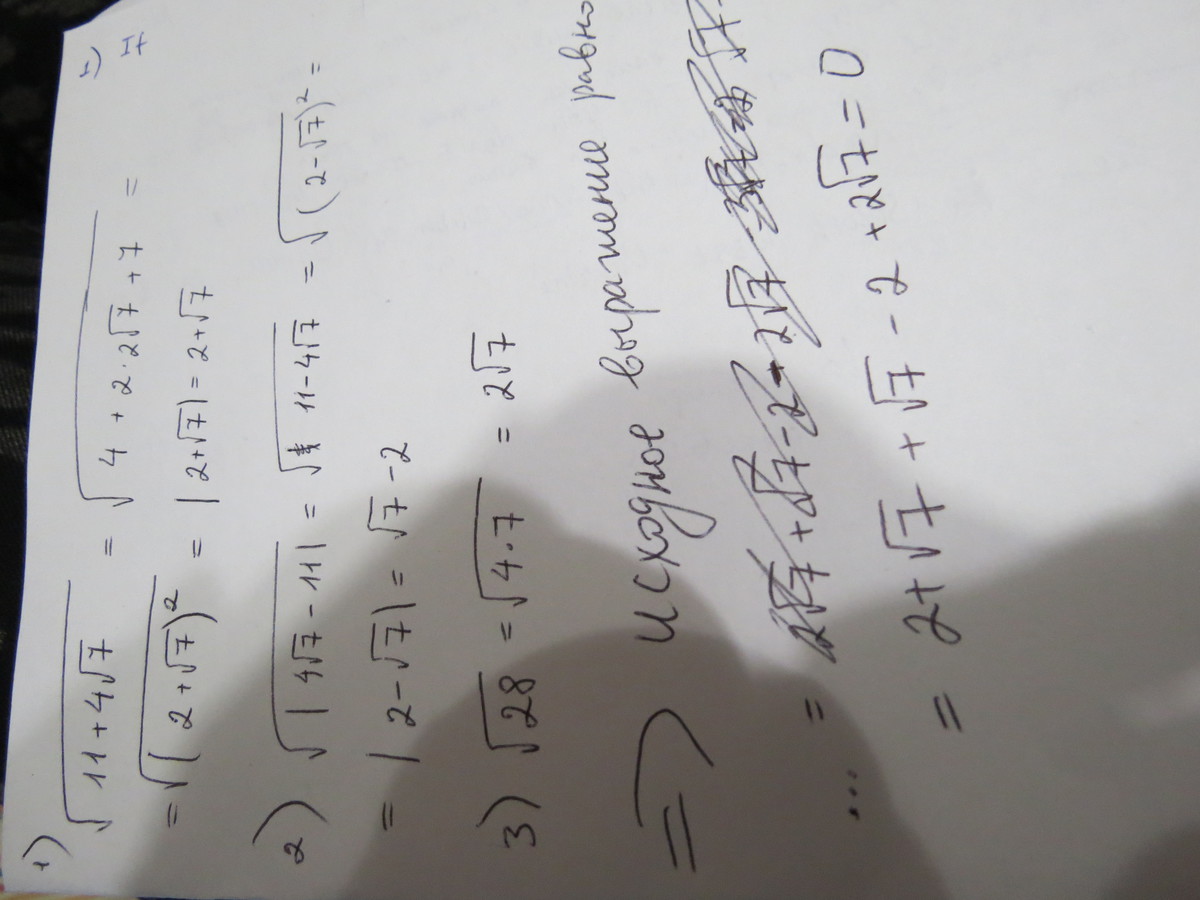 1) √(11+4√7) = √(4+2·2√7+7) =
= √(2+√7)² = |2+√7| = 2+√7
2) √|4√7-11| = √(11-4√7) = √(2-√7)² =
= |2-√7| = √7-2
3) √28 = √(4·7) = 2√7
=> исходное выражение равно
... =
= 2+√7 + √7 - 2 + 2√7 = 0